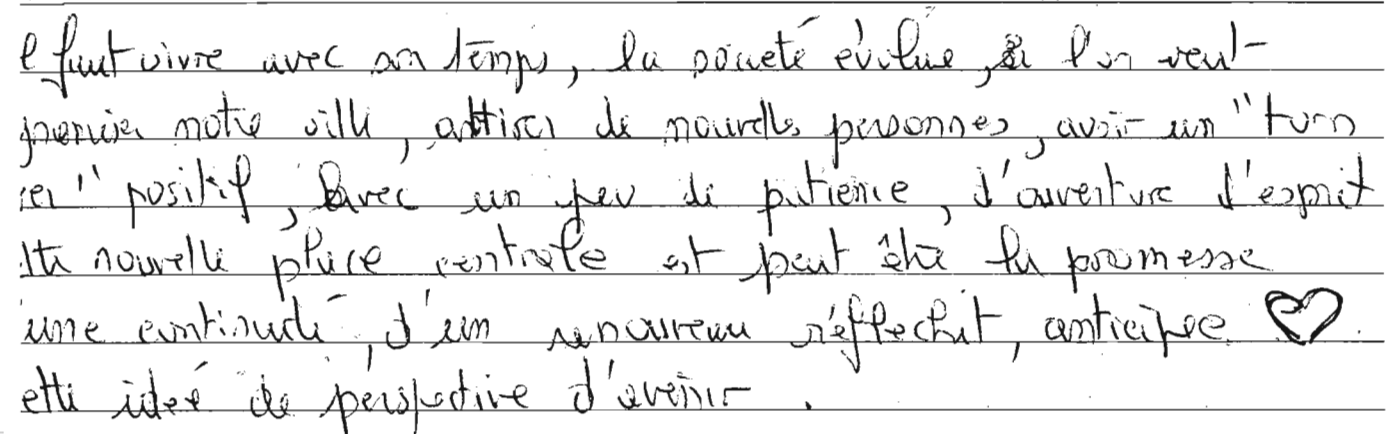 l faut vivre avec son temps, la société évolue, si l'on veut
notre ville, attirer de nouvelles personnes, avoir un "turn
er" positif, avec un peu de patience, d'ouverture d'esprit
tte nouvelle place centrale est peut être la promesse
une continuité, d'un renouveau réflechit, anticipée ♡.
ette ideé de perspective d'avenir.